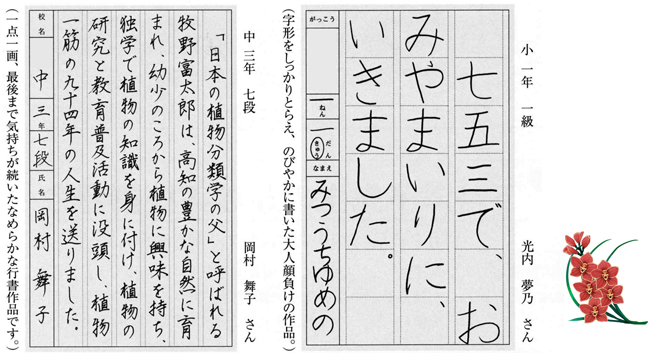 小一年 一級
光内 夢乃 さん
七五三で、お
みやまいりに、
いきました。
がっこう
一ねん
一 だん きゅう
なまえ
みつうちゆめの
(字形をしっかりとらえ、のびやかに書いた大人顔負けの作品。)
中三年 七段
岡村 舞子 さん
「日本の植物分類学の父」と呼ばれる
牧野富太郎は、高知の豊かな自然に育
まれ、幼少のころから植物に興味を持ち、
独学で植物の知識を身に付け、植物の
研究と教育普及活動に没頭し、植物
一筋の九十四年の人生を送りました。
校名
中
三年
七段
氏名
岡村 舞子
(一点一画、最後まで気持ちが続いたなめらかな行書作品です。)